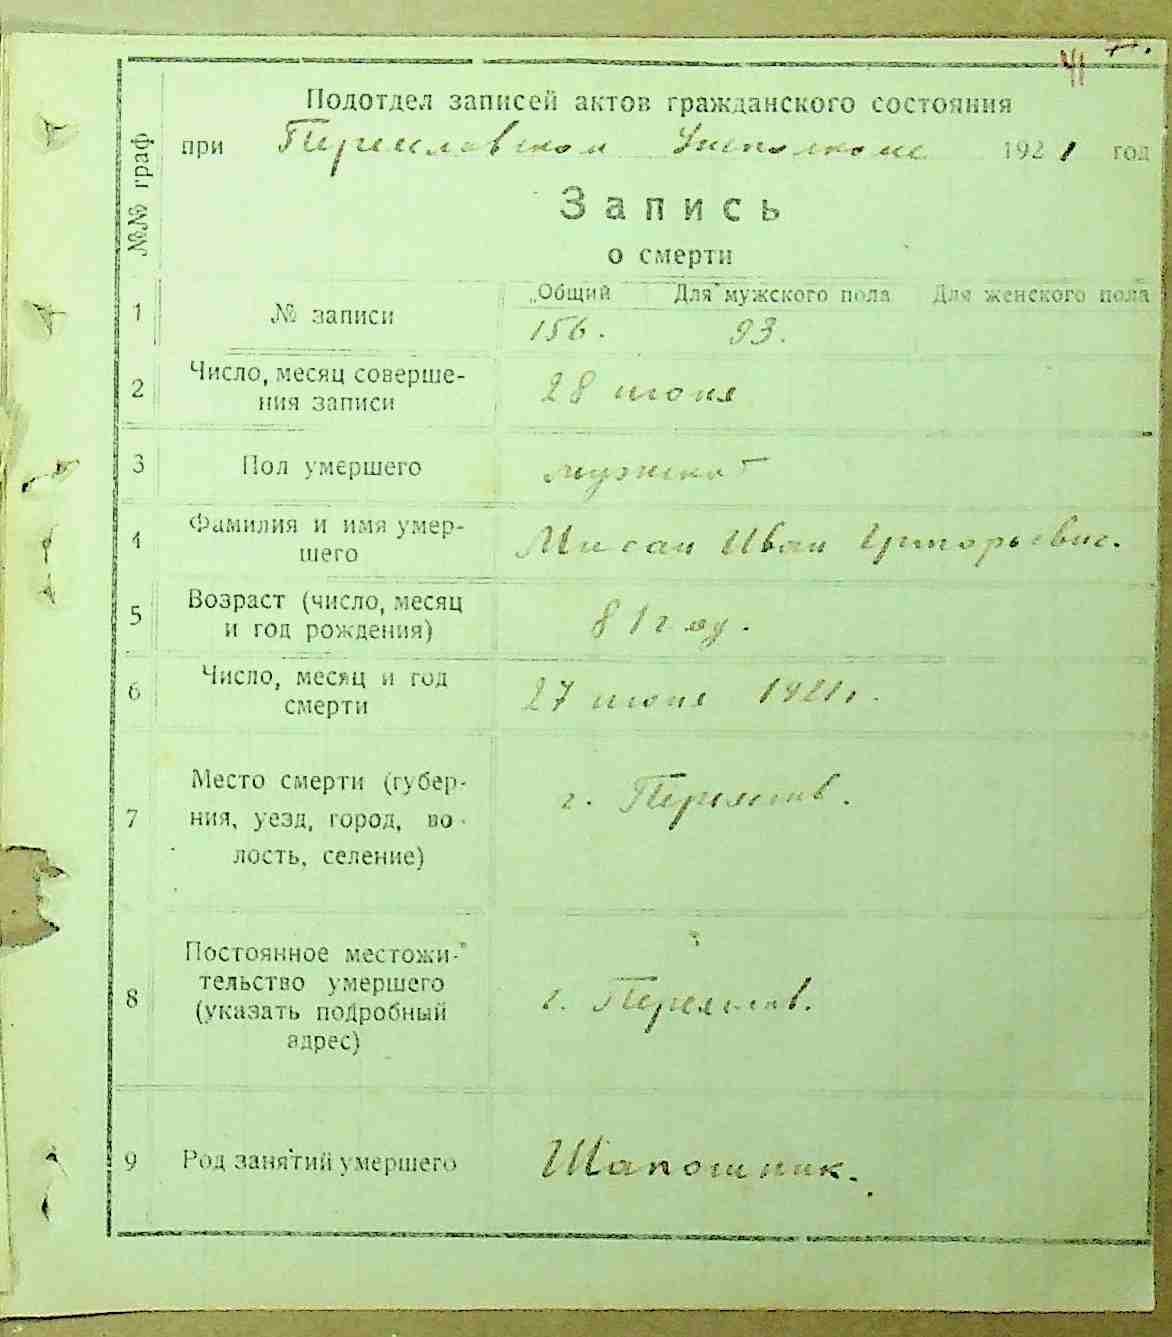 41
Подотдел записей актов гражданского состояния
при Переяславском Уисполкоме 1921 год
№№ граф
Запись
о смерти
1 № записи Общий Для мужского пола Для женского пола
156. 93.
2 Число, месяц соверше-
ния записи 28 июня
3 Пол умершего мужской
4 Фамилия и имя умер-
шего Мисан Иван Григорьевич.
5 Возраст (число, месяц
и год рождения) 81 году.
6 Число, месяц и год
смерти 27 июня 1921 г.
7 Место смерти (губер-
ния, уезд, город, во-
лость, селение) г. Переяслав.
8 Постоянное местожи-
тельство умершего
(указать подробный
адрес) г. Переяслав.
9 Род занятий умершего Шапошник.